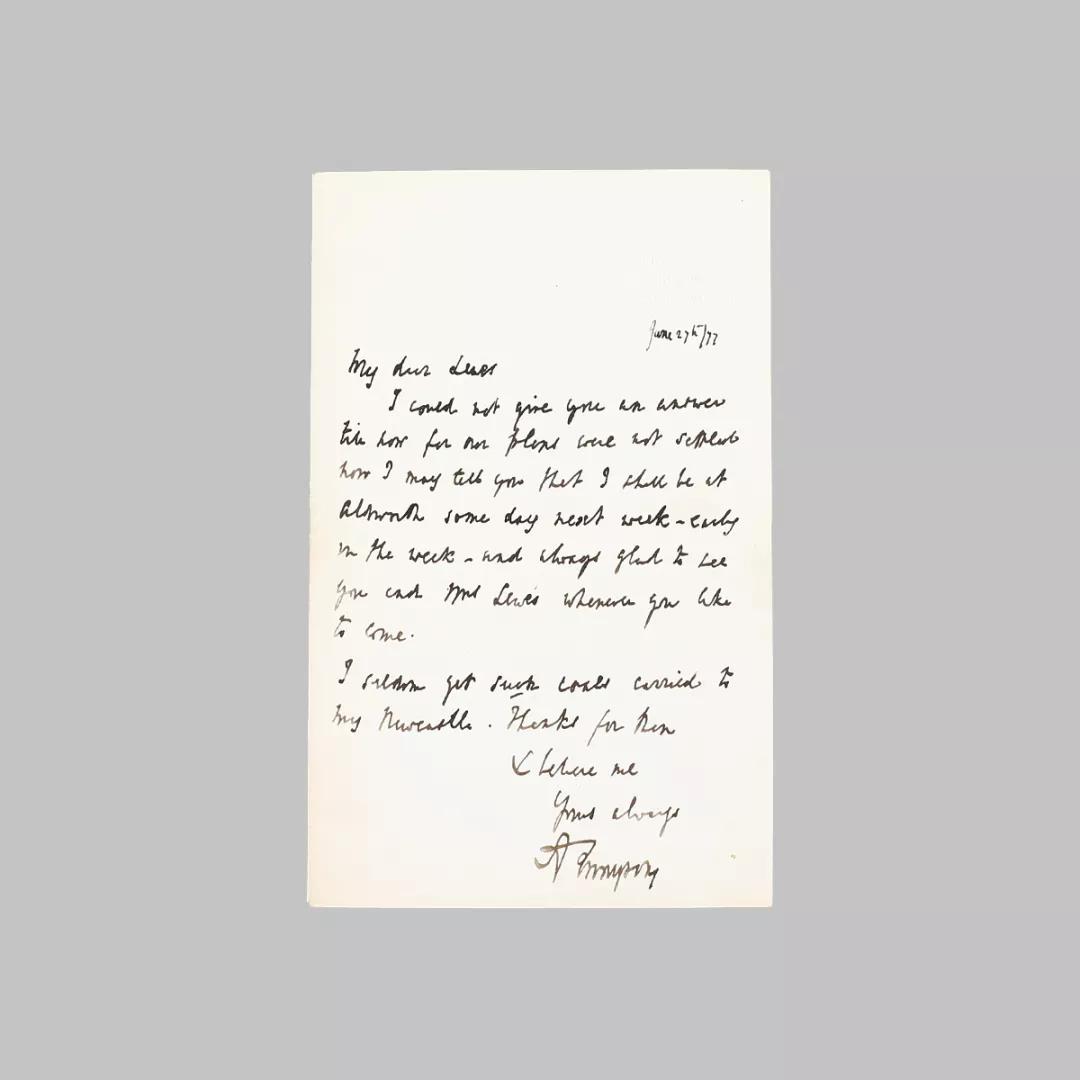 June 27th/77
My dear Lewes
I could not give you an answer
till now for our plans were not settled
now I may tell you that I shall be at
Aldworth some day next week - early
in the week - and always glad to see
you and Mrs Lewes whenever you like
to come.
I seldom get such coals carried to
my Newcastle. Thanks for them
& believe me
Yours always
A Tennyson